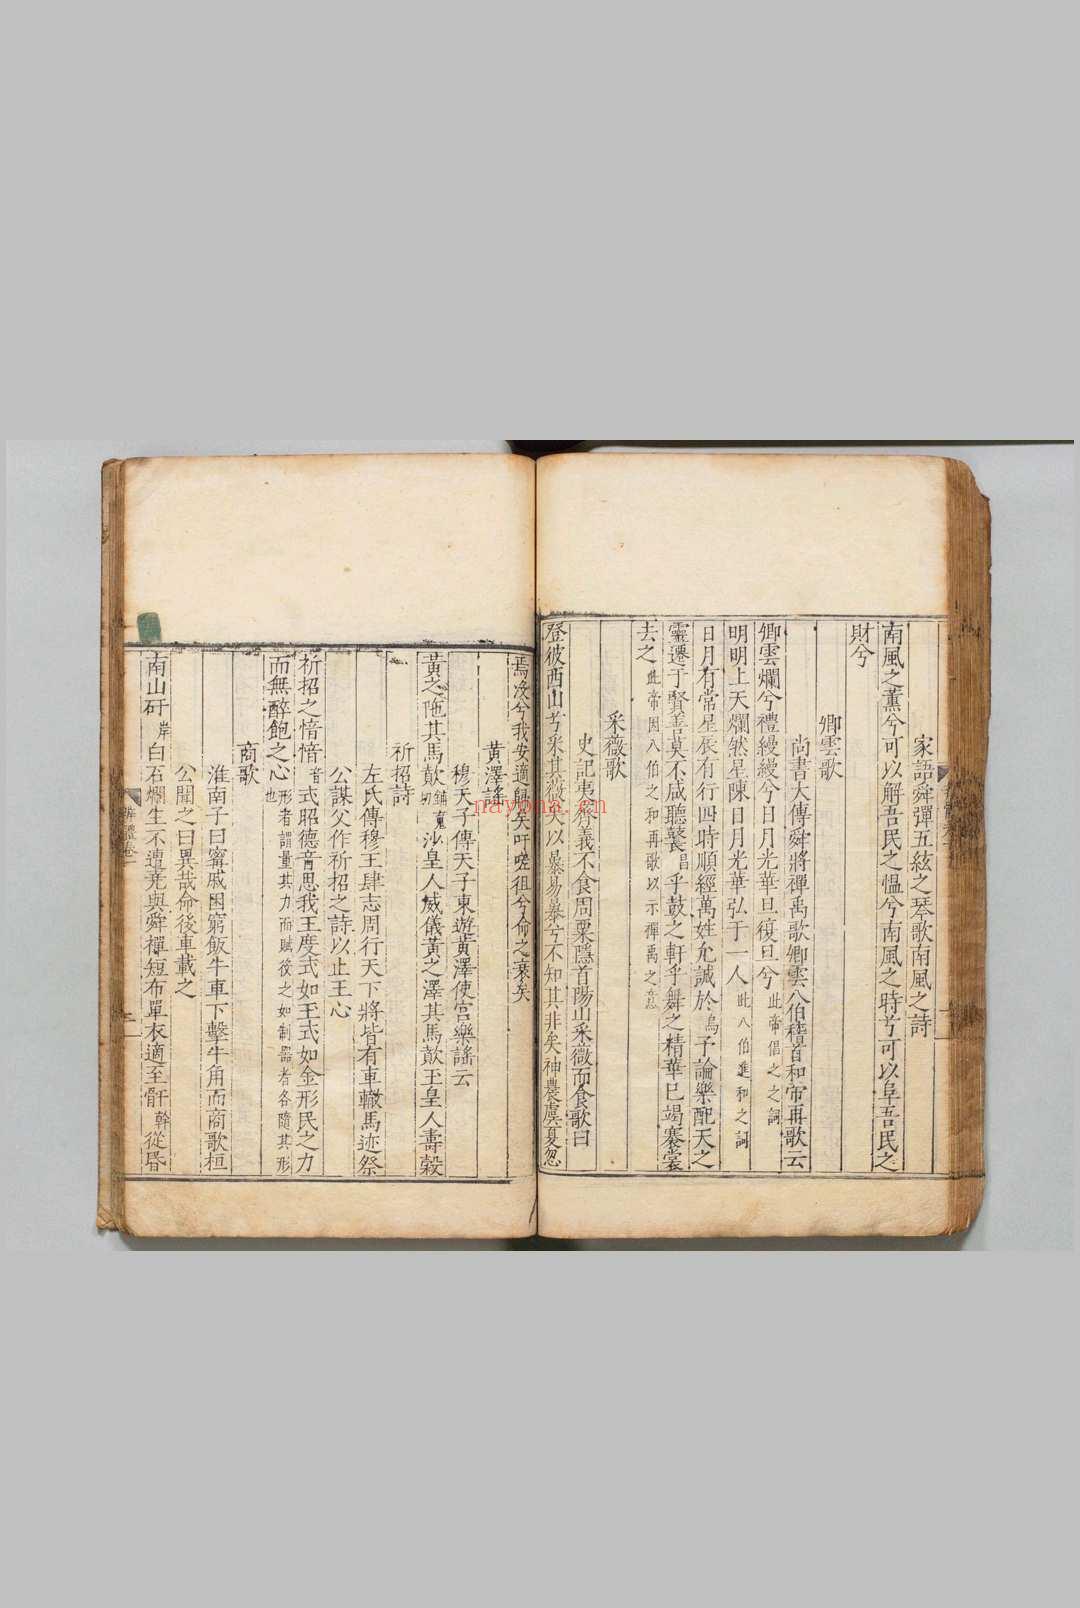 家語舜彈五絃之琴歌南風之詩
南風之薰兮可以解吾民之慍兮南風之時兮可以阜吾民之
財兮
卿雲歌
尚書大傳舜將禪禹歌卿雲八伯稽首和帝再歌云
卿雲爛兮禮縵縵兮日月光華旦復旦兮此帝倡之之詞
明明上天爛然星陳日月光華弘于一人此八伯進和之詞
日月有常星辰有行四時順經萬姓允誠於烏予論樂配天之
靈遷于賢善莫不咸聽鼚昌乎鼓之軒乎舞之精華已竭褰裳
去之此帝因八伯之和再歌以示禪禹之意
采薇歌
史記夷齊義不食周粟隱首陽山采薇而食歌曰
登彼西山兮采其薇矣以暴易暴兮不知其非矣神農虞夏忽
焉沒兮我安適歸矣吁嗟徂兮命之衰矣
黃澤謠
穆天子傳天子東遊黃澤使宮樂謠云
黃之陁其馬歕鋪䰟切沙皇人威儀黃之澤其馬歕玉皇人壽穀
祈招詩
左氏傳穆王肆志周行天下將皆有車轍馬迹祭
公謀父作祈招之詩以止王心
祈招之愔愔音式昭德音思我王度式如玉式如金形民之力
而無醉飽之心形者謂量其力而賦後之如制器者各隨其形也
商歌
淮南子曰甯戚困窮飯牛車下擊牛角而商歌桓
公聞之曰異哉命後車載之
南山矸岸白石爛生不遭堯與舜禪短布單衣適至骭幹從昏
辨體卷一
nayona.cn